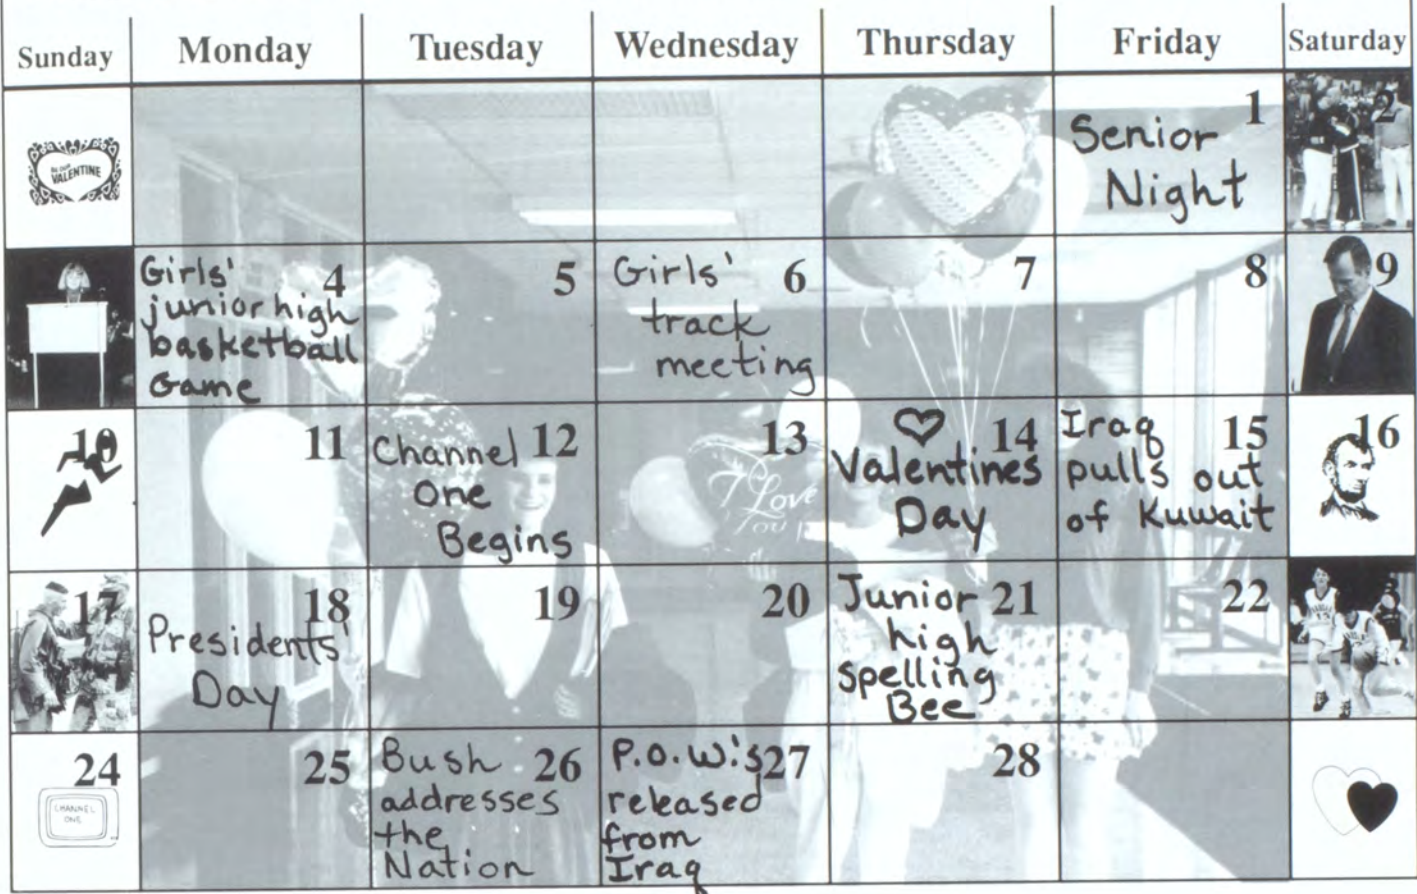 Sunday Monday Tuesday Wednesday Thursday Friday Saturday
Be our
VALENTINE
1
Senior
Night
2
Girls' 4
junior high
basketball
Game
5
Girls' 6
track
meeting
7
8
9
10
11
Channel 12
One
Begins
13
I Love
You
♡ 14
Valentines
Day
Iraq 15
pulls out
of Kuwait
16
17
18
Presidents'
Day
19
20
Junior 21
high
Spelling
Bee
22
24
CHANNEL
ONE
25
Bush 26
addresses
the
Nation
P.O.W.'s 27
released
from
Iraq
28